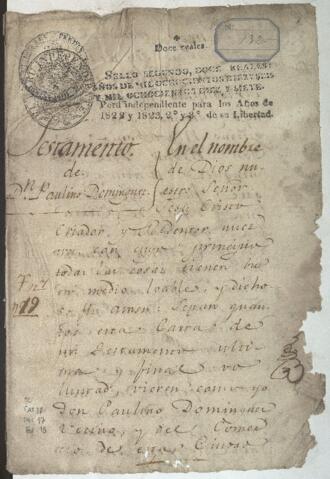 Doce reales.
SELLO SEGUNDO, DOCE REALES
AÑOS DE MIL OCHOCIENTOS DIEZ Y SEIS
Y MIL OCHOCIENTOS DIEZ Y SIETE.
Perú independiente para los Años de
1822 y 1823, 2.º y 3.º de su Libertad.
Testamento.
de
Dn. Paulino Dominguez
En el nombre
de Dios nu-
estro Señor
Criador, y Redentor nues
tro con cuyo principio
todas las cosas tienen bu
en medio loable, y dicho
so fin amen: Sepan quan
tos esta Carta de
mi Testamento ulti
ma y final vo
luntad, vieren como yo
don Paulino Dominguez
Vecino, y del Comer
cio de esta Ciudad
nº 19